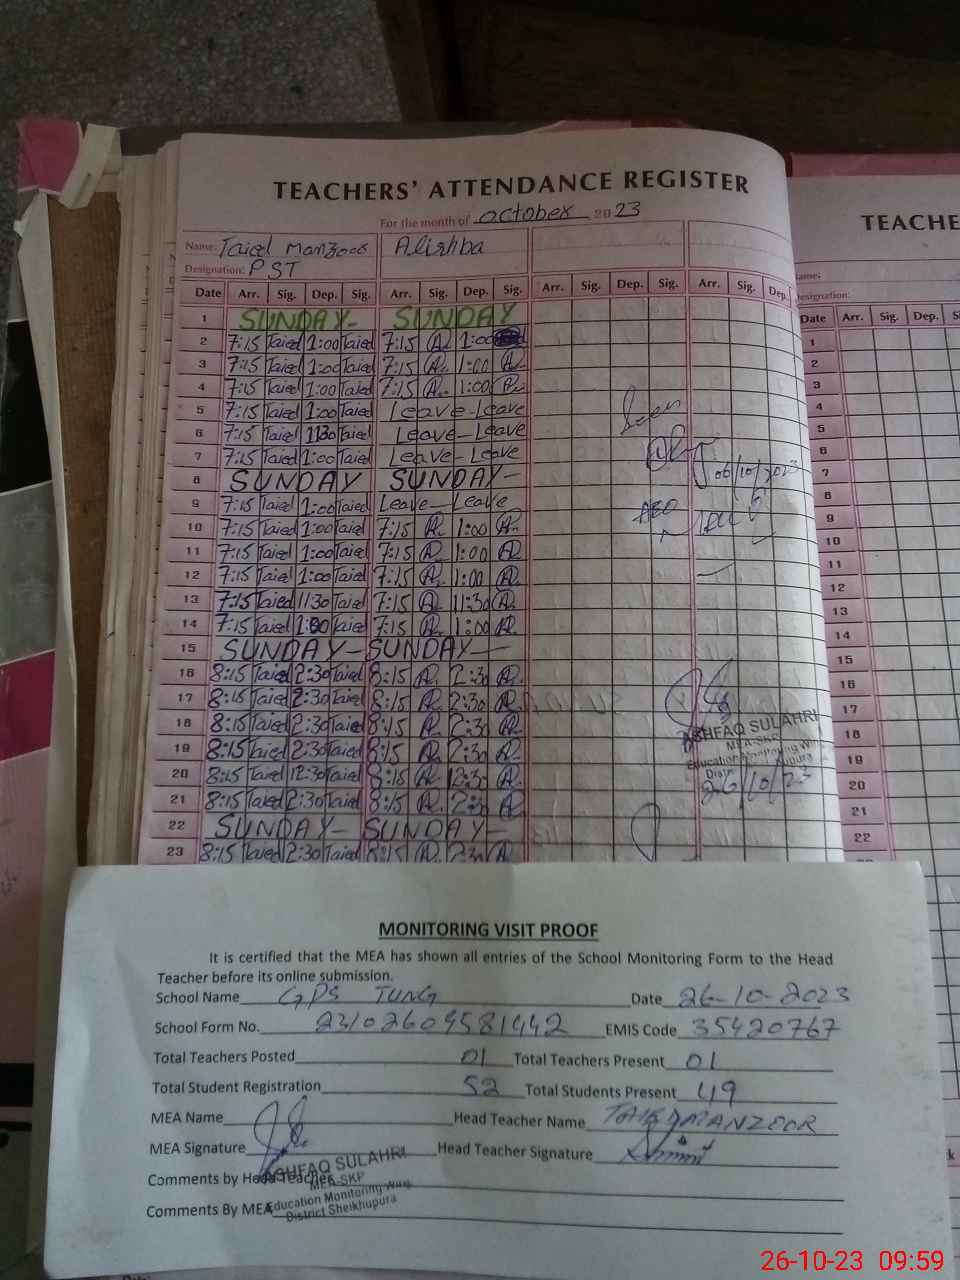 TEACHERS' ATTENDANCE REGISTER
For the month of October 2023
Name: Alishba
Designation: PST
Date Arr. Sig. Dep. Sig. Arr. Sig. Dep. Sig. Arr. Sig. Dep. Sig. Arr. Sig. Dep.
1 SUNDAY- SUNDAY
2 7:15 Taied 1:00 Taied 7:15 A. 1:00
3 7:15 Taied 1:00 Taied 7:15 A. 1:00 A.
4 7:15 Taied 1:00 Taied 7:15 A. 1:00 A.
5 7:15 Taied 1:00 Taied Leave-Leave
6 7:15 Taied 1130 Taied Leave-Leave
7 7:15 Taied 1:00 Taied Leave-Leave
8 SUNDAY SUNDAY-
9 7:15 Taied 1:00 Taied Leave- Leave
10 7:15 Taied 1:00 Taied 7:15 A. 1:00 A.
11 7:15 Taied 1:00 Taied 7:15 A. 1:00 A.
12 7:15 Taied 1:00 Taied 7:15 A. 1:00 A.
13 7:15 Taied 11:30 Taied 7:15 A. 11:30 A.
14 7:15 Taied 1:00 Taied 7:15 A. 1:00 A.
15 SUNDAY-SUNDAY-
16 8:15 Taied 2:30 Taied 8:15 A. 2:30 A.
17 8:15 Taied 2:30 Taied 8:15 A. 2:30 A.
18 8:15 Taied 2:30 Taied 8:15 A. 2:30 A.
19 8:15 Taied 2:30 Taied 8:15 A. 2:30 A.
20 8:15 Taied 12:30 Taied 8:15 A. 12:30 A.
21 8:15 Taied 2:30 Taied 8:15 A. 2:30 A.
22 SUNDAY- SUNDAY-
23 8:15 Taied 2:30 Taied 8:15 A. 2:30 A.
Seen
06/10/2023
AEO
ASHFAQ SULAHRI
MEA-SKP
Education Monitoring Wing
26/10/23
TEACHE
Name:
Designation:
Date Arr. Sig. Dep. S
1
2
3
4
5
6
7
8
9
10
11
12
13
14
15
16
17
18
19
20
21
22
MONITORING VISIT PROOF
It is certified that the MEA has shown all entries of the School Monitoring Form to the Head
Teacher before its online submission.
School Name GPS TUNG Date 26-10-2023
School Form No. 23102609581442 EMIS Code 35420767
Total Teachers Posted 01 Total Teachers Present 01
Total Student Registration 52 Total Students Present 49
MEA Name Head Teacher Name MANZOOR
MEA Signature Head Teacher Signature
Comments by Head Teacher
Comments By MEA
ASHFAQ SULAHRI
MEA-SKP
Education Monitoring Wing
District Sheikhupura
26-10-23 09:59